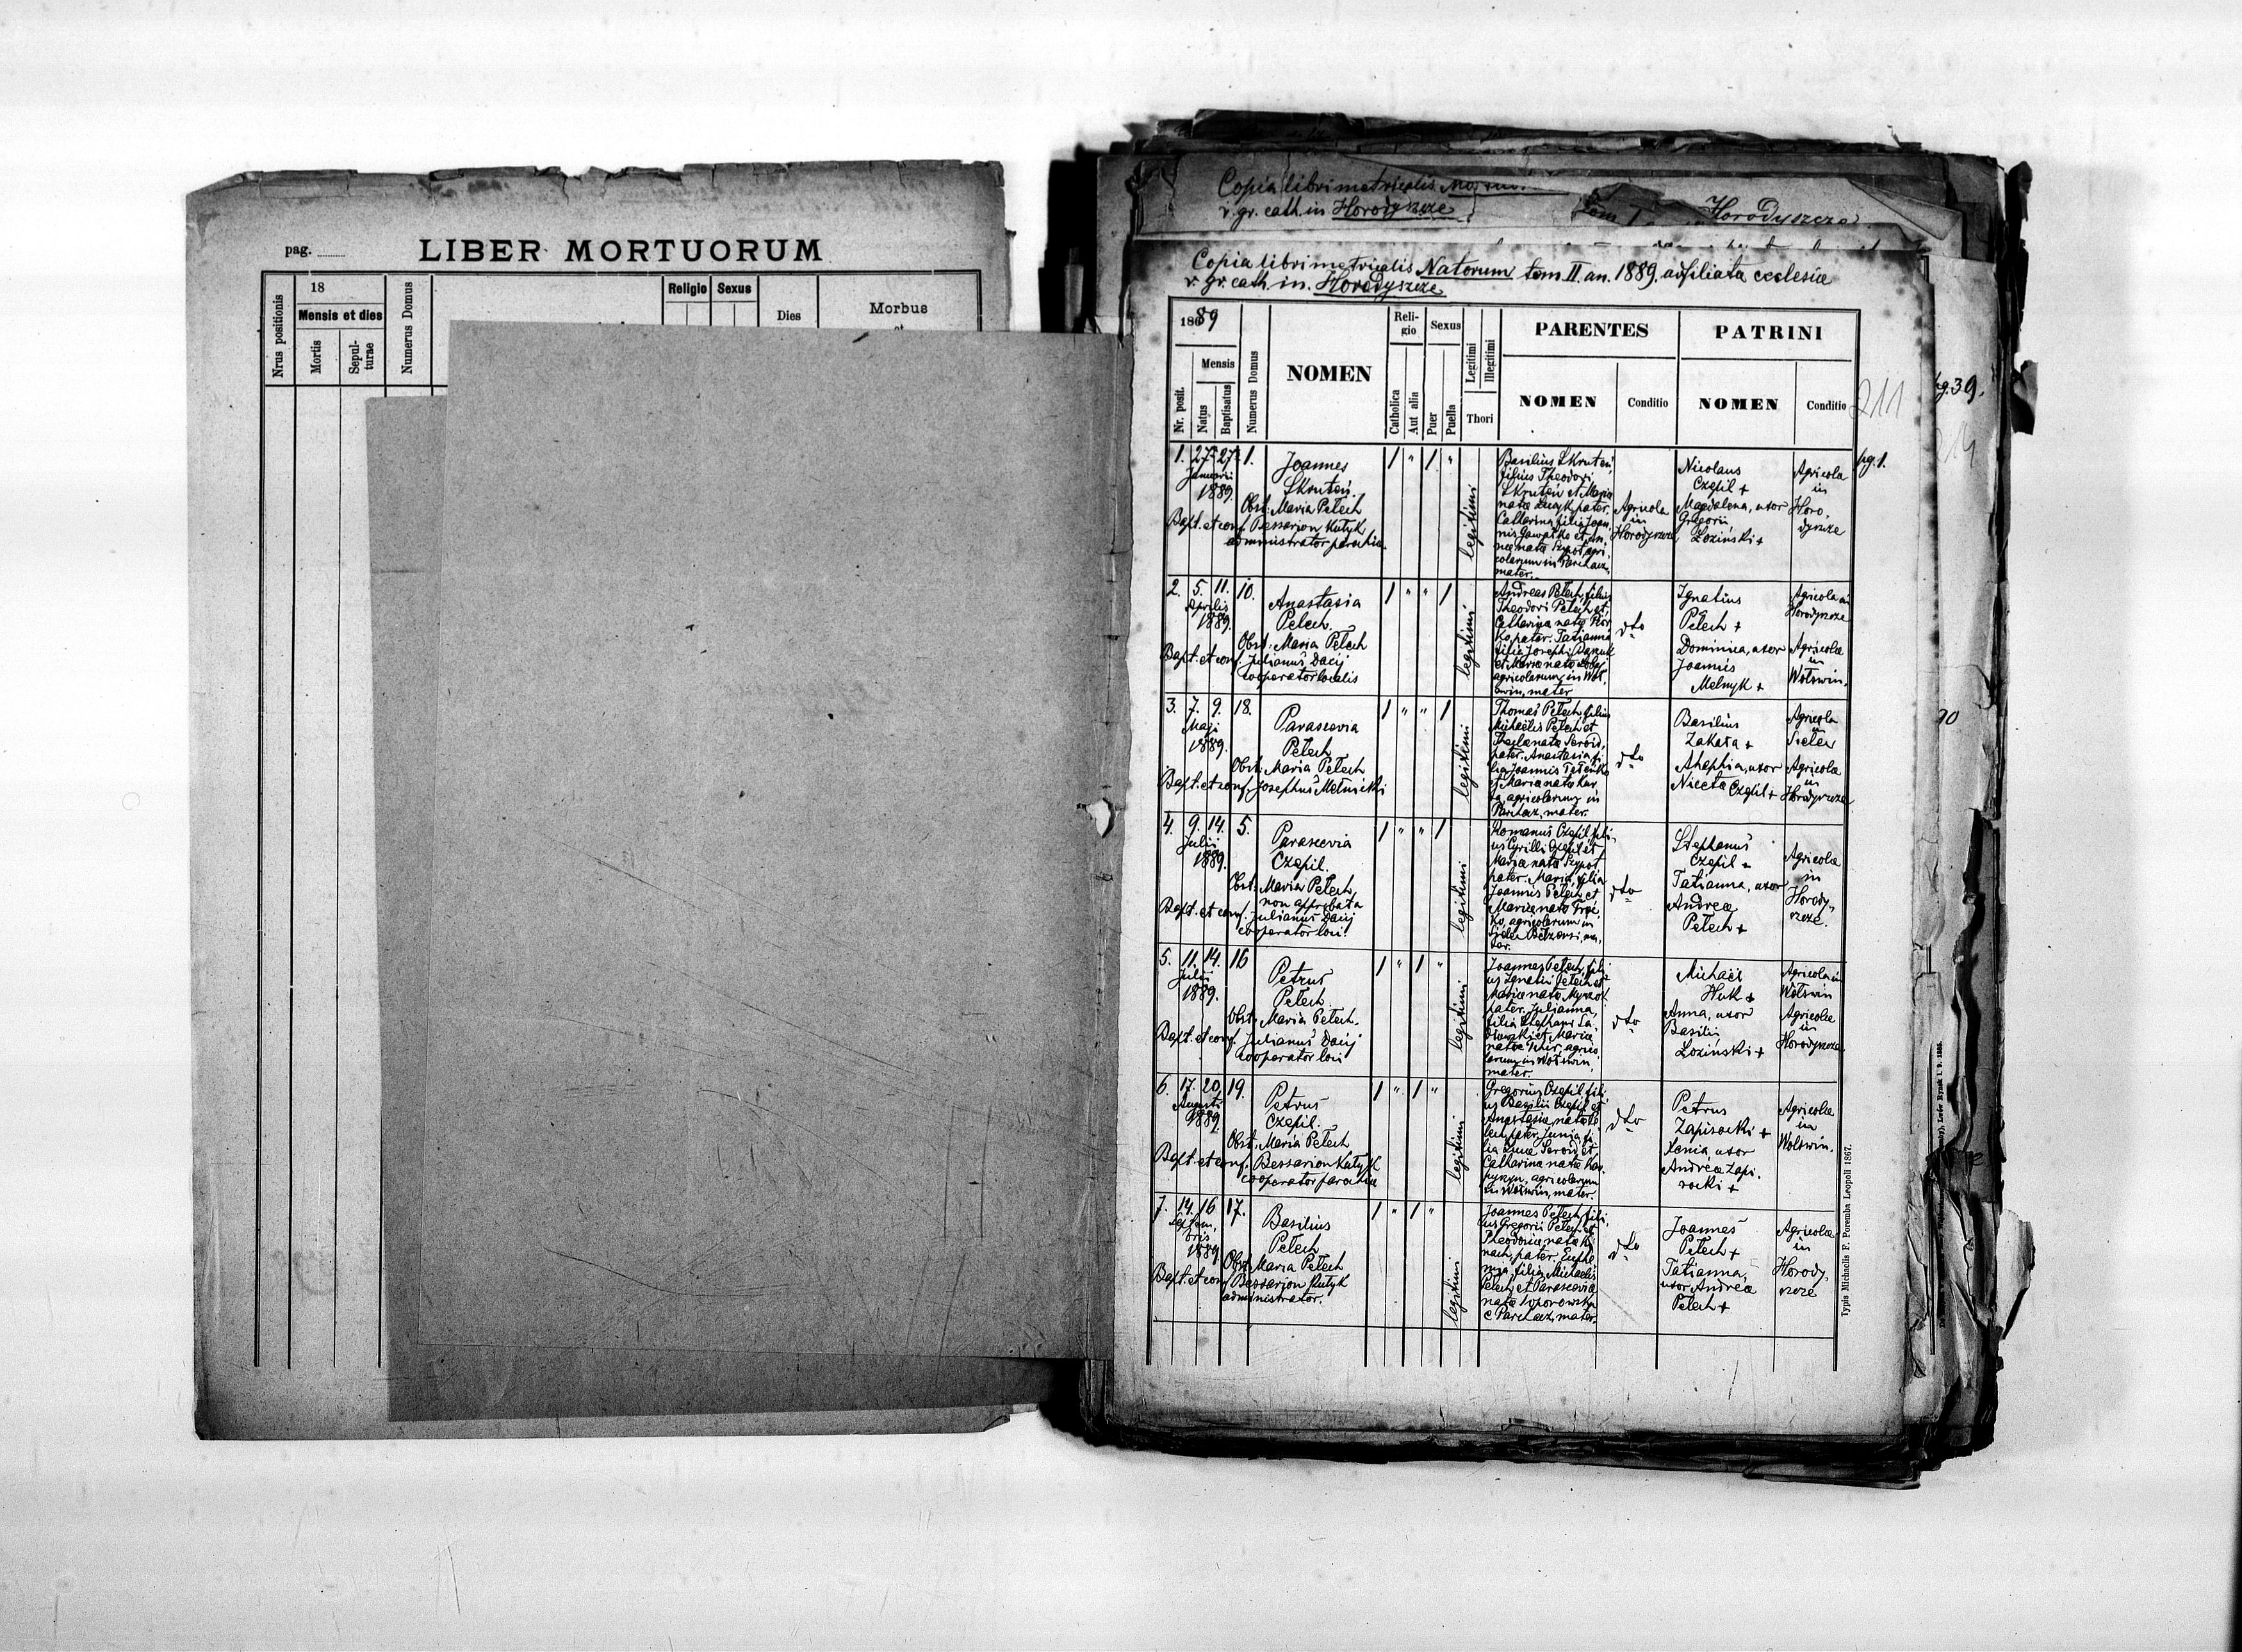 pag.
LIBER MORTUORUM
Nrus positionis
18
Mensis et dies
Mortis
Sepul-
turae
Numerus Domus
Religio
Sexus
Dies
Morbus
et
Copia libri metricalis
r. gr. cath. in Horodyszcze
Tom I
Horodyszcze
Copia libri metricalis Natorum tom II. an. 1889. adfiliata ecclesiae
r. gr. cath. in Horodyszcze
1889
Mensis
Nr. posit.
Natus
Baptisatus
Numerus Domus
NOMEN
Reli-
gio
Catholica
Aut alia
Sexus
Puer
Puella
Legitimi
Illegitimi
Thori
PARENTES
NOMEN
Conditio
PATRINI
NOMEN
Conditio
211
pg. 39.
pg. 1.
1. 27. 27. 1.
Januarii
1889.
Joannes
Skruteń.
Obst: Maria Pełech
Bapt. et conf. Bessarion Kutyk
administrator parochiae
1 " 1 "
legitimi
Basilius Skruteń,
filius Theodori
Skruteń et Maria
nata Łucyk pater.
Catharina filia Joan-
nis Gawałko et An-
na nata Sypot, agri-
colarum in Parchacz,
mater.
Agricola
in
Horodyszcze
Nicolaus
Czepil +
Magdalena, uxor
Gregorii
Łoziński +
Agricola
in
Horo-
dyszcze
2. 5. 11. 10.
Aprilis
1889.
Anastasia
Pełech.
Obst: Maria Pełech
Bapt. et conf. Julianus Dacij
cooperator localis
1 " " 1
legitimi
Andreas Pełech, filius
Theodori Pełech et
Catharina nata
pater. Tatianna
filia Josephi
et Maria nata
agricolarum in Woł-
swin, mater
dto
Ignatius
Pełech +
Dominica, uxor
Joannis
Melnyk +
Agricola in
Horodyszcze
Agricola
in
Wołswin.
3. 7. 9. 18.
Maji
1889.
Parascevia
Pełech
Obst: Maria Pełech
Bapt. et conf. Josephus Metnicki
1 " " 1
legitimi
Thomas Pełech, filius
Michaelis Pełech et
Thecla nata Seroid,
pater. Anastasia fi-
lia Joannis
et Maria nata
agricolarum in
Parchacz, mater.
dto
Basilius
Zakała +
Ahaphia, uxor
Niceta Czepil +
Agricola
in
Sielec
Agricola
in
Horodyszcze
4. 9. 14. 5.
Julii
1889.
Parascevia
Czepil.
Obst. Maria Pełech,
non approbata
Bapt. et conf. Julianus Dacij
cooperator loci.
1 " " 1
legitimi
Romanus Czepil, fili-
us Cyrilli Czepil et
Maria nata Sypot
pater. Maria, filia
Joannis Pełech et
Maria nata
agricolarum in
Sielec Bełzensi, ma-
ter.
dto
Stephanus
Czepil +
Tatianna, uxor
Andreae
Pełech +
Agricola
in
Horody-
szcze.
5. 11. 14. 16
Julii
1889.
Petrus
Pełech
Obst. Maria Pełech.
Bapt. et conf. Julianus Dacij
cooperator loci
1 " 1 "
legitimi
Joannes Pełech, fili-
us Ignatii Pełech et
Maria nata
pater. Julianna,
filia Stephani
et Maria
nata agrico-
larum in Wołswin,
mater.
dto
Michael
Huk +
Anna, uxor
Basilii
Łoziński +
Agricola in
Wołswin
Agricola
in
Horodyszcze
6. 17. 20. 19.
Augusti
1889.
Petrus
Czepil.
Obst. Maria Pełech
Bapt. et conf. Bessarion Kutyk
cooperator parochiae
1 " 1 "
legitimi
Gregorius Czepil, fili-
us Basilii Czepil et
Anastasia nata Pe-
łech, pater. Junia, fi-
lia Lucae Seroid et
Catharina nata
agricolarum
in Wołswin, mater.
dto
Petrus
Zapisocki +
Xenia, uxor
Andreae Zapi-
socki +
Agricola
in
Wołswin.
7. 14. 16 17.
Septem-
bris
1889.
Basilius
Pełech
Obst: Maria Pełech
Bapt. et conf. Bessarion Kutyk
administrator.
1 " 1 "
legitimi
Joannes Pełech, fili-
us Gregorii Pełech et
Theodosia nata
pater. Euphe-
mia, filia Michaelis
Pełech et Parascevia
nata Toporowska
e Parchacz, mater.
dto
Joannes
Pełech +
Tatianna,
uxor Andreae
Pełech +
Agricola
in
Horody-
szcze
Typis Michaelis F. Poremba Leopoli 1867.